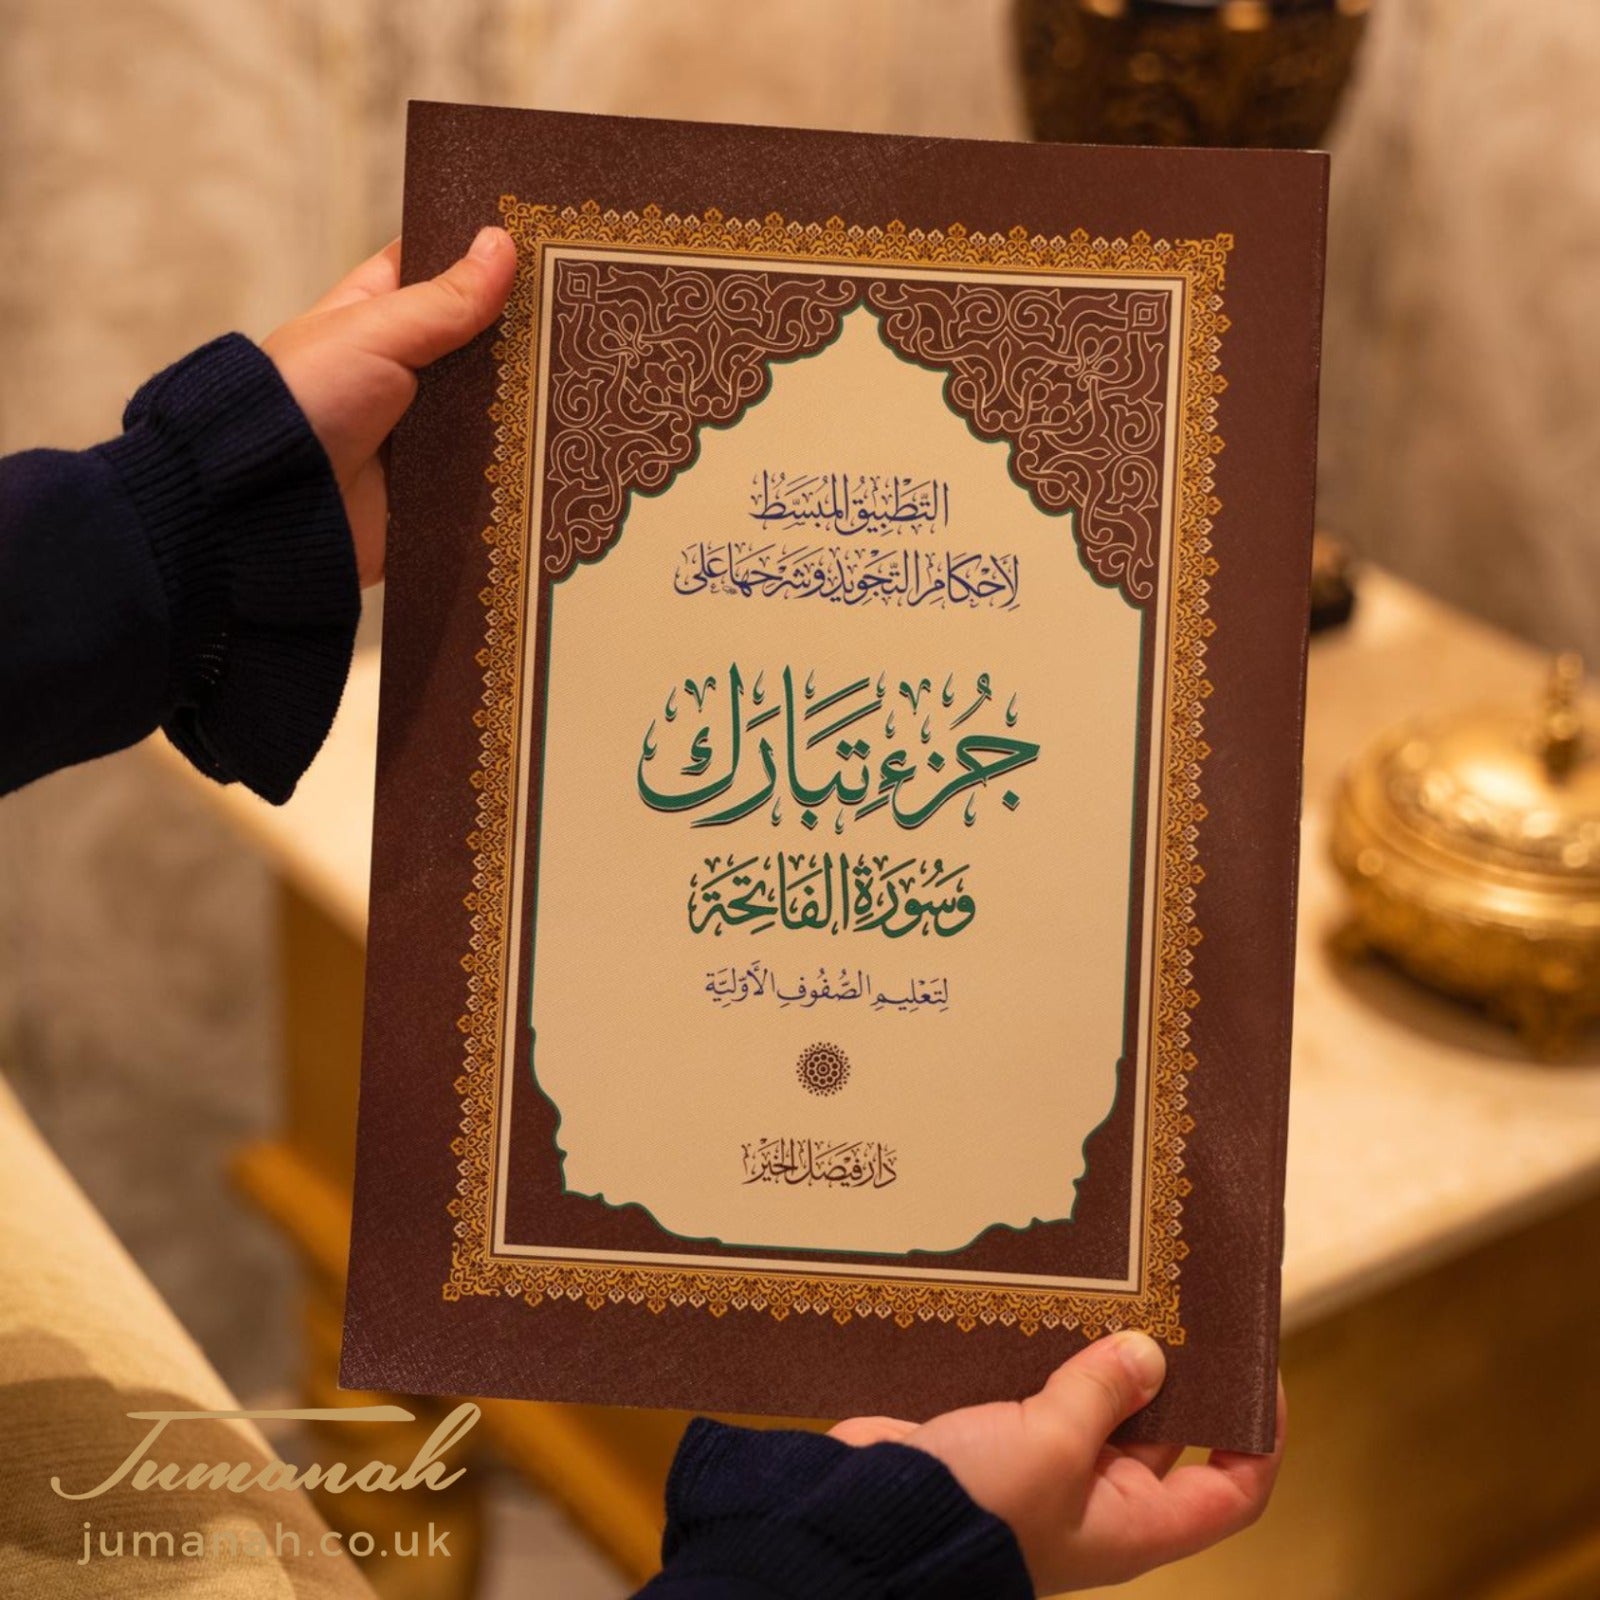 التَّطْبِيقُ المُبَسَّطُ
لِأَحْكَامِ التَّجْوِيدِ وَشَرْحِهَا عَلَى
جُزْءِ تَبَارَكَ
وَسُورَةِ الفَاتِحَةِ
لِتَعْلِيمِ الصُّفُوفِ الأَوَّلِيَّةِ
دَار فَيْصَل الخَيْر
Jumanah
jumanah.co.uk